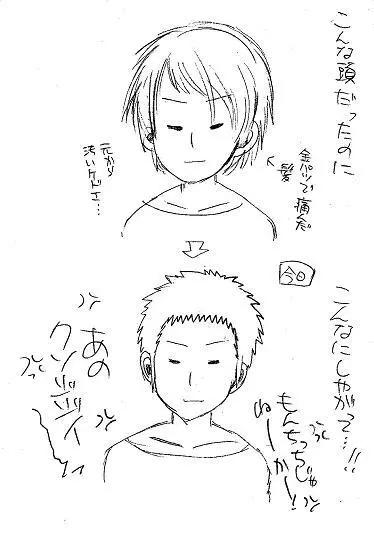 こんな頭だったのに
金パツで痛んだ
髪
元から
汚いケドナ…
今日
こんなにしやがって…!!
もんちっちじゃ
ねーかー!
あの
クソジジイ